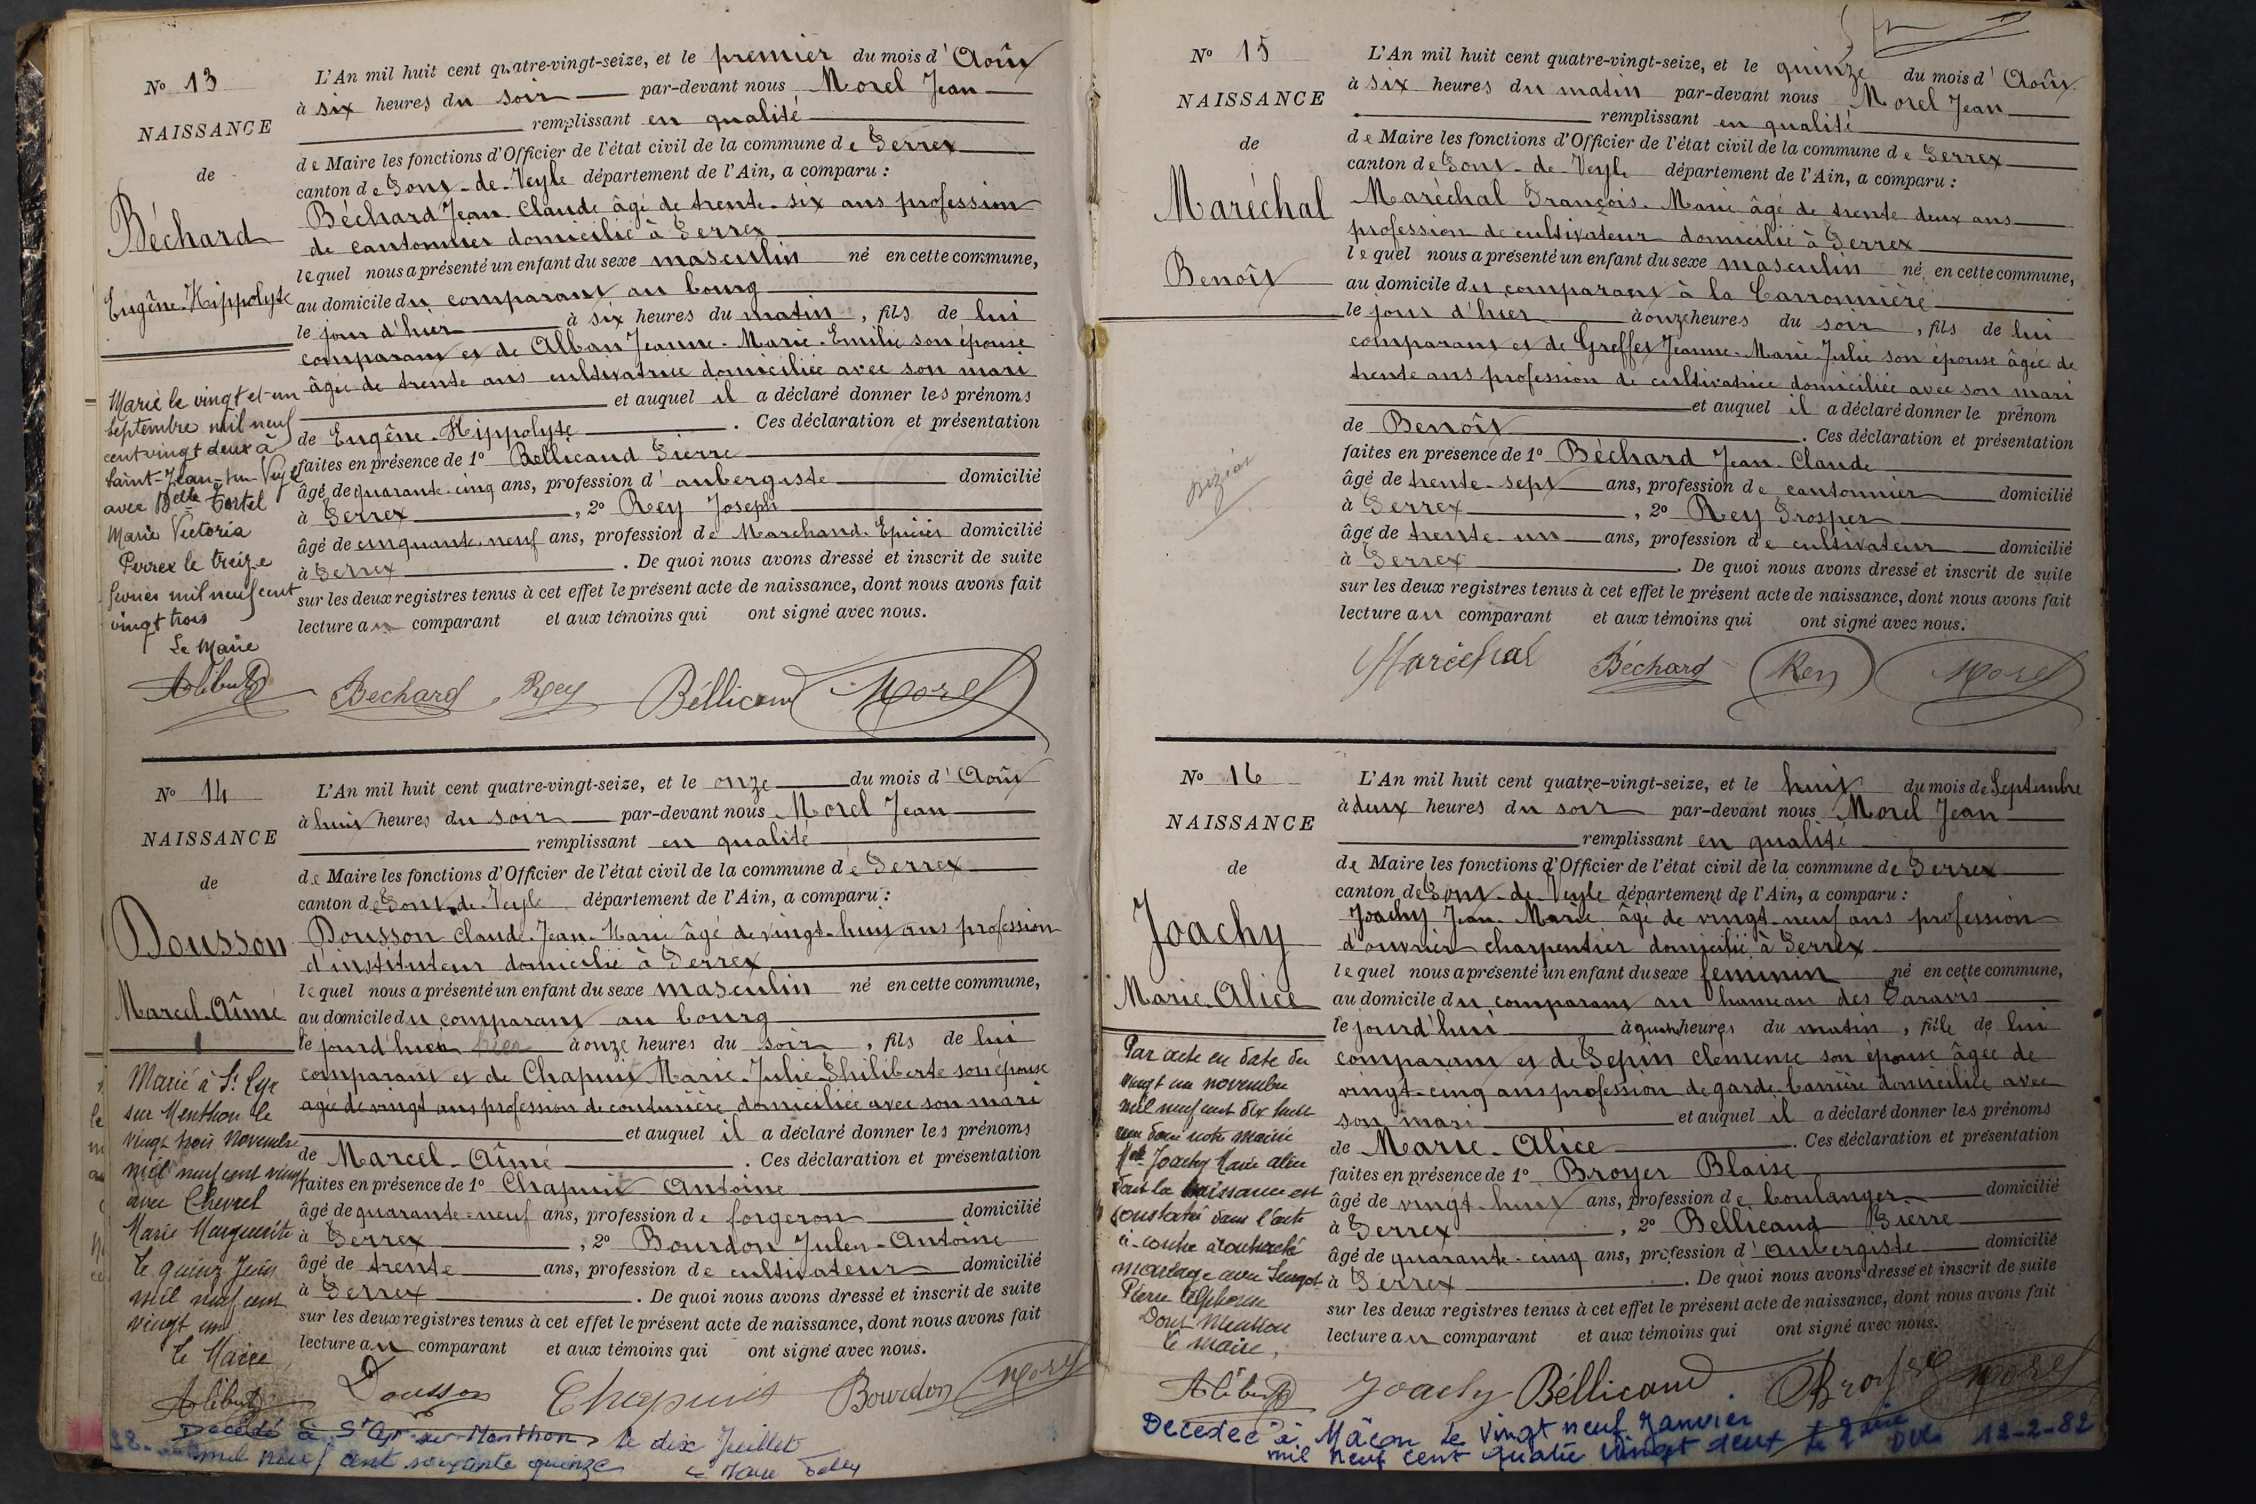 N° 13
NAISSANCE
de
Béchard
Eugène-Hippolyte
L'An mil huit cent quatre-vingt-seize, et le premier du mois d'Août
à six heures du soir par-devant nous Morel Jean
remplissant en qualité
de Maire les fonctions d'Officier de l'état civil de la commune de Perrex
canton de Pont-de-Veyle département de l'Ain, a comparu :
Béchard Jean-Claude âgé de trente-six ans profession
de cantonnier domicilié à Perrex
lequel nous a présenté un enfant du sexe masculin né en cette commune,
au domicile du comparant au bourg
le jour d'hier à six heures du matin, fils de lui
comparant et de Alban Jeanne-Marie-Emilie son épouse
âgée de trente ans cultivatrice domiciliée avec son mari
et auquel il a déclaré donner les prénoms
de Eugène-Hippolyte. Ces déclaration et présentation
faites en présence de 1° Bellicaud Pierre
âgé de quarante-cinq ans, profession d'aubergiste domicilié
à Perrex, 2° Rey Joseph
âgé de cinquante-neuf ans, profession de Marchand-Epicier domicilié
à Perrex. De quoi nous avons dressé et inscrit de suite
sur les deux registres tenus à cet effet le présent acte de naissance, dont nous avons fait
lecture au comparant et aux témoins qui ont signé avec nous.
Marié le vingt et un
septembre mil neuf
cent vingt deux à
Saint-Jean-sur-Veyle
avec Delle Tortel
Marie Victoria
Perrex le treize
février mil neuf cent
vingt trois
Le Maire
Béchard Rey Béllicaud Morel
N° 14
NAISSANCE
de
Dousson
Marcel-Aimé
L'An mil huit cent quatre-vingt-seize, et le onze du mois d'Août
à huit heures du soir par-devant nous Morel Jean
remplissant en qualité
de Maire les fonctions d'Officier de l'état civil de la commune de Perrex
canton de Pont-de-Veyle département de l'Ain, a comparu :
Dousson Claude-Jean-Marie âgé de vingt-huit ans profession
d'instituteur domicilié à Perrex
lequel nous a présenté un enfant du sexe masculin né en cette commune,
au domicile du comparant au bourg
le jour d'hier à onze heures du soir, fils de lui
comparant et de Chapuis Marie-Julie-Philiberte son épouse
agée de vingt ans profession de couturière domiciliée avec son mari
et auquel il a déclaré donner les prénoms
de Marcel-Aimé. Ces déclaration et présentation
faites en présence de 1° Chapuis Antoine
âgé de quarante-neuf ans, profession de forgeron domicilié
à Perrex, 2° Bourdon Jules-Antoine
âgé de trente ans, profession de cultivateur domicilié
à Perrex. De quoi nous avons dressé et inscrit de suite
sur les deux registres tenus à cet effet le présent acte de naissance, dont nous avons fait
lecture au comparant et aux témoins qui ont signé avec nous.
Marié à St Cyr
sur Menthon le
vingt trois Novembre
mil neuf cent vingt
avec Chevrel
Marie Marguerite
Le quinze Juin
mil neuf cent
vingt un
Le Maire
Dousson Chapuis Bourdon Morel
Décédé à St Cyr sur Menthon, le dix Juillet
mil neuf cent soixante quinze Le Maire
N° 15
NAISSANCE
de
Maréchal
Benoît
L'An mil huit cent quatre-vingt-seize, et le quinze du mois d'Août
à six heures du matin par-devant nous Morel Jean
remplissant en qualité
de Maire les fonctions d'Officier de l'état civil de la commune de Perrex
canton de Pont-de-Veyle département de l'Ain, a comparu :
Maréchal François-Marie âgé de trente deux ans
profession de cultivateur domicilié à Perrex
lequel nous a présenté un enfant du sexe masculin né en cette commune,
au domicile du comparant à la Carronnière
le jour d'hier à onze heures du soir, fils de lui
comparant et de Greffet Jeanne-Marie-Julie son épouse âgée de
trente ans profession de cultivatrice domiciliée avec son mari
et auquel il a déclaré donner le prénom
de Benoît. Ces déclaration et présentation
faites en présence de 1° Béchard Jean-Claude
âgé de trente-sept ans, profession de cantonnier domicilié
à Perrex, 2° Rey Prosper
âgé de trente-un ans, profession de cultivateur domicilié
à Perrex. De quoi nous avons dressé et inscrit de suite
sur les deux registres tenus à cet effet le présent acte de naissance, dont nous avons fait
lecture au comparant et aux témoins qui ont signé avec nous.
Maréchal Béchard Rey Morel
N° 16
NAISSANCE
de
Joachy
Marie-Alice
L'An mil huit cent quatre-vingt-seize, et le huit du mois de Septembre
à deux heures du soir par-devant nous Morel Jean
remplissant en qualité
de Maire les fonctions d'Officier de l'état civil de la commune de Perrex
canton de Pont-de-Veyle département de l'Ain, a comparu :
Joachy Jean-Marie âgé de vingt-neuf ans profession
d'ouvrier charpentier domicilié à Perrex
lequel nous a présenté un enfant du sexe féminin né en cette commune,
au domicile du comparant au hameau des Paravis
le jourd'hui à quatre heures du matin, fille de lui
comparant et de Pépin Clémence son épouse âgée de
vingt-cinq ans profession de garde-barrière domiciliée avec
son mari et auquel il a déclaré donner les prénoms
de Marie-Alice. Ces déclaration et présentation
faites en présence de 1° Broyer Blaise
âgé de vingt-huit ans, profession de boulanger domicilié
à Perrex, 2° Bellicaud Pierre
âgé de quarante-cinq ans, profession d'aubergiste domicilié
à Perrex. De quoi nous avons dressé et inscrit de suite
sur les deux registres tenus à cet effet le présent acte de naissance, dont nous avons fait
lecture au comparant et aux témoins qui ont signé avec nous.
Par acte en date du
vingt un novembre
mil neuf cent dix huit
dans notre mairie
Melle Joachy Marie Alice
dont la naissance est
constatée dans l'acte
ci-contre a contracté
mariage avec
Pierre
Dont mention
Le Maire,
Joachy Béllicaud Broyer Morel
Décédée à Mâcon le vingt neuf Janvier
mil neuf cent quatre vingt deux 12-2-82